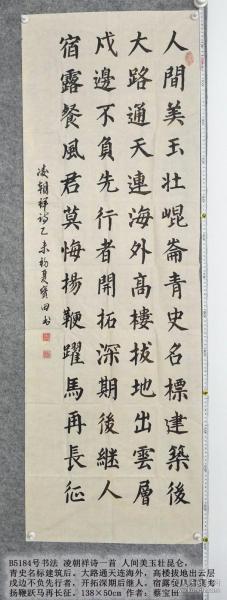 人間美玉壮崐崙青史名標建築後
大路通天連海外高樓拔地出雲層
戍邊不負先行者開拓深期後継人
宿露餐風君莫悔揚鞭躍馬再長征
凌朝祥詩乙未初夏寳田书
B5184号书法 凌朝祥诗一首 人间美玉壮昆仑,
青史名标建筑后。大路通天连海外,高楼拔地出云层
戍边不负先行者,开拓深期后继人。宿露餐风君莫悔
扬鞭跃马再长征。138×50cm 作者:蔡宝田